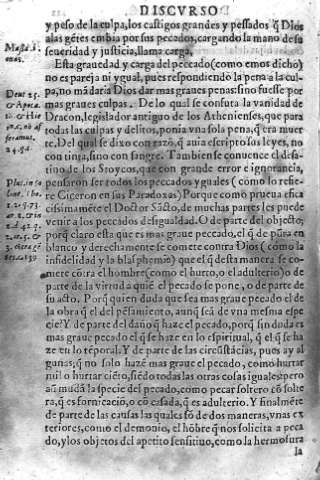 DISCVRSO
y peso de la culpa, los castigos grandes y pessados q̃ Dios
a las gẽtes embia por sus pecados, cargando la mano de su
seueridad y justicia, llama carga,
Esta grauedad y carga del peccado (como emos dicho)
no es pareja ni ygual, pues respondiendo la pena a la cul
pa, no mádaria Dios dar mas graues penas: sino fuesse por
mas graues culpas. De lo qual se confuta la vanidad de
Dracon, legislador antiguo de los Athenienses, que para
todas las culpas y delitos, ponia vna sola pena, q̃ era muer
te. Del qual se dixo con razõ, q̃ auia escripto sus leyes, no
con tinta, sino con sangre. Tambien se conuence el desa-
tino de los Stoycos, que con grande error e ignorancia,
pensaron ser todos los peccados yguales (como lo refie
re Ciceron en sus Paradoxas) Porque como prueua effica
cissimamẽte el Doctor Sácto, de muchas partes les puede
venir a los peccados desigualdad. O de parte del objecto,
porq̃ claro esta que es mas graue peccado, el q̃ de pũta en
blanco y derechamente se comete contra Dios (como la
infidelidad y la blasphemia) que el q̃ desta manera se co-
mete cõtra el hombre (como el hurto, o el adulterio) o de
parte de la virtud a quiẽ el pecado se pone, o de parte de
su acto. Porq̃ quien duda que sea mas graue pecado el de
la obra q̃ el del pẽsamiento, aunq̃ seá de vna mesma espe
cie? Y de parte del daño q̃ haze el pecado, porq̃ sin duda es
mas graue pecado el q̃ se haze en lo espiritual, q̃ el q̃ se ha
ze en lo tẽporal. Y de parte de las circũstácias, pues ay al
gunas, q̃ no solo hazẽ mas graue el pecado, como hurtar
mil o hurtar ciẽto, siẽdo todas las otras cosas iguales: pero
aũ mudá la specie del pecado, como pecar soltero cõ solte
ra, q̃ es fornicació, o cõ casada, q̃ es adulterio. Y finalmẽte
de parte de las causas las quales sõ de dos maneras, vnas ex
teriores, como el demonio, el hõbre q̃ nos solicita a peca
do, y los objetos del apetito sensitiuo, como la hermosura
la